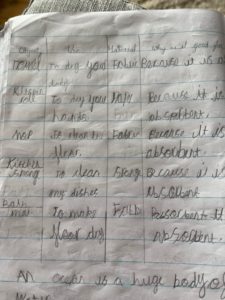 object use Material why is it good for
Towel To dry your Fabric Because it is a
dish
Kitchen To dry your Paper Because it is
roll hands absorbent.
Mop To clean the Fabric Because it is
floor. absorbent.
Kitchen To clean Sponge Because it is
sponge my dishes Absorbent.
Bath To make Fabric Because it is
mat floor dry Absorbent.
An ocean is a huge body of
water